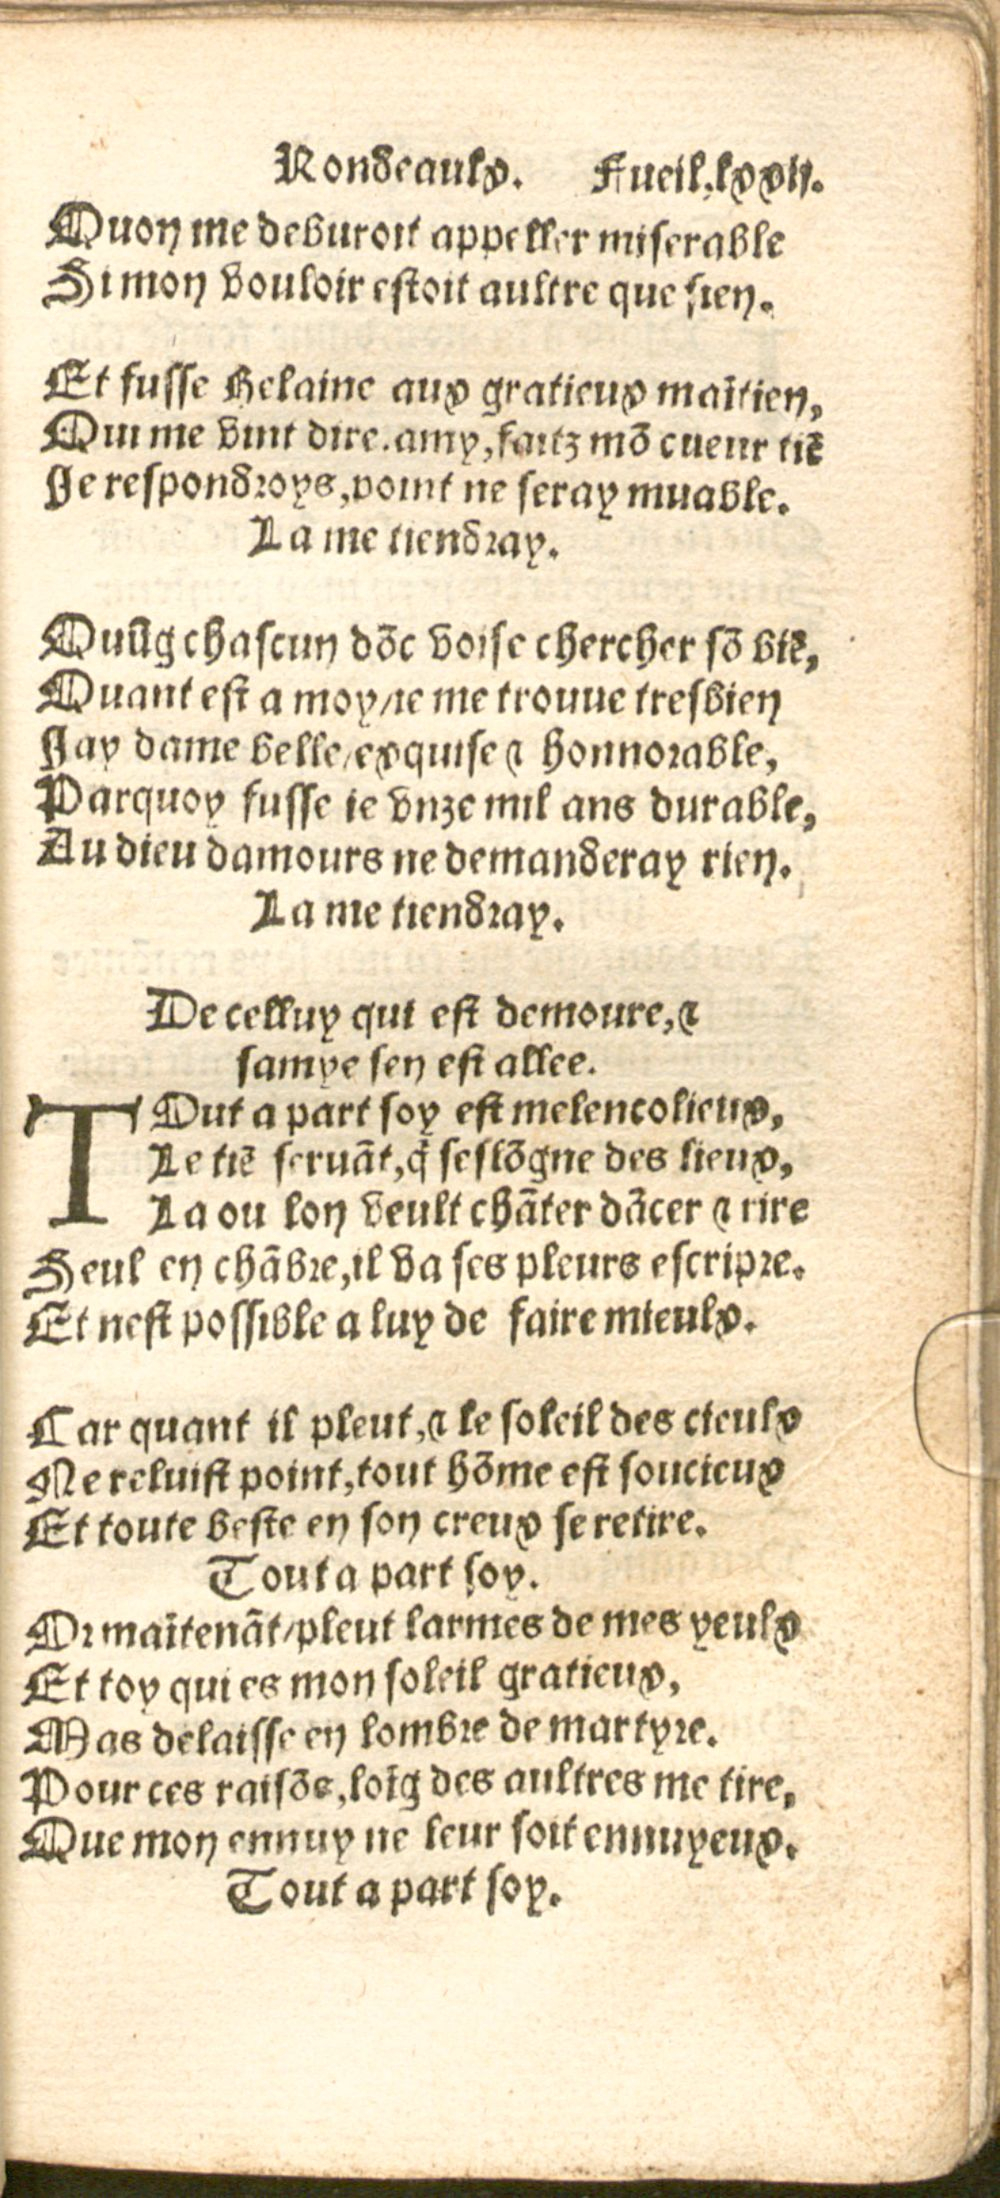 Rondeaulx. Fueil.lxxij.
Quon me deburoit appeller miserable
Si mon vouloir estoit aultre que sien.
Et fusse Helaine aux gratieux maĩtien,
Qui me vint dire.amy,faitz mõ cueur tiẽ
Je respondroys,point ne seray muable.
La me tiendray.
Quũg chascun dõc voise chercher sõ biẽ,
Quant est a moy/ie me trouue tresbien
Jay dame belle/exquise ⁊ honnorable,
Parquoy fusse ie vnze mil ans durable,
Au dieu damours ne demanderay rien.
La me tiendray.
De celluy qui est demoure,⁊
samye sen est allee.
TOut a part soy est melencolieux,
Le tiẽ seruãt,q̃ seslõgne des lieux,
La ou lon veult chãter dãcer ⁊ rire
Seul en chãbre,il va ses pleurs escripre.
Et nest possible a luy de faire mieulx.
Car quant il pleut,⁊ le soleil des cieulx
Ne reluist point,tout hõme est soucieux
Et toute beste en son creux se retire.
Tout a part soy.
Or maĩtenãt/pleut larmes de mes yeulx
Et toy qui es mon soleil gratieux,
Mas delaisse en lombre de martyre.
Pour ces raisõs,loĩg des aultres me tire,
Que mon ennuy ne leur soit ennuyeux.
Tout a part soy.